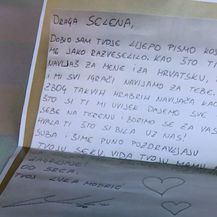 DRAGA SELENA,
DOBIO SAM TVOJE LIJEPO PISMO KOJE
ME JAKO RAZVESELILO. KAO ŠTO TI
NAVIJAŠ ZA MENE I ZA HRVATSKU,
I MI SVI IGRAČI NAVIJAMO ZA TEBE.
ZBOG TAKVIH HRABRIH NAVIJAČA KAO
ŠTO SI TI MI UVIJEK DAJEMO SVE
SEBE NA TERENU I BORIMO SE ZA VAS
HVALA TI ŠTO SI BILA UZ NAS!
LJUBI I ŠIME PUNO POZDRAVLJAJU
TVOJU SEKU VIDA TVOJU MAMU
SRCA,
TVOJ LUKA MODRIĆ